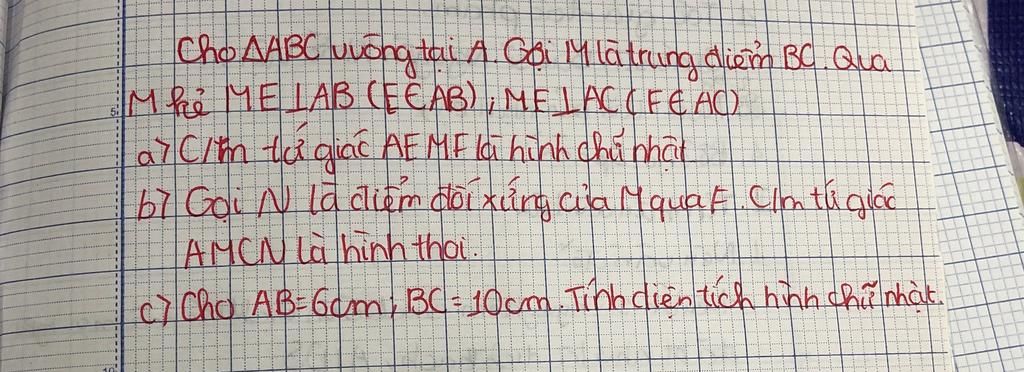 Cho ΔABC vuông tại A. Gọi M là trung điểm BC. Qua
M kẻ ME⊥AB (E∈AB), MF⊥AC (F∈AC)
a) C/m tứ giác AEMF là hình chữ nhật
b) Gọi N là điểm đối xứng của M qua F. C/m tứ giác
AMCN là hình thoi.
c) Cho AB=6cm; BC=10cm. Tính diện tích hình chữ nhật.